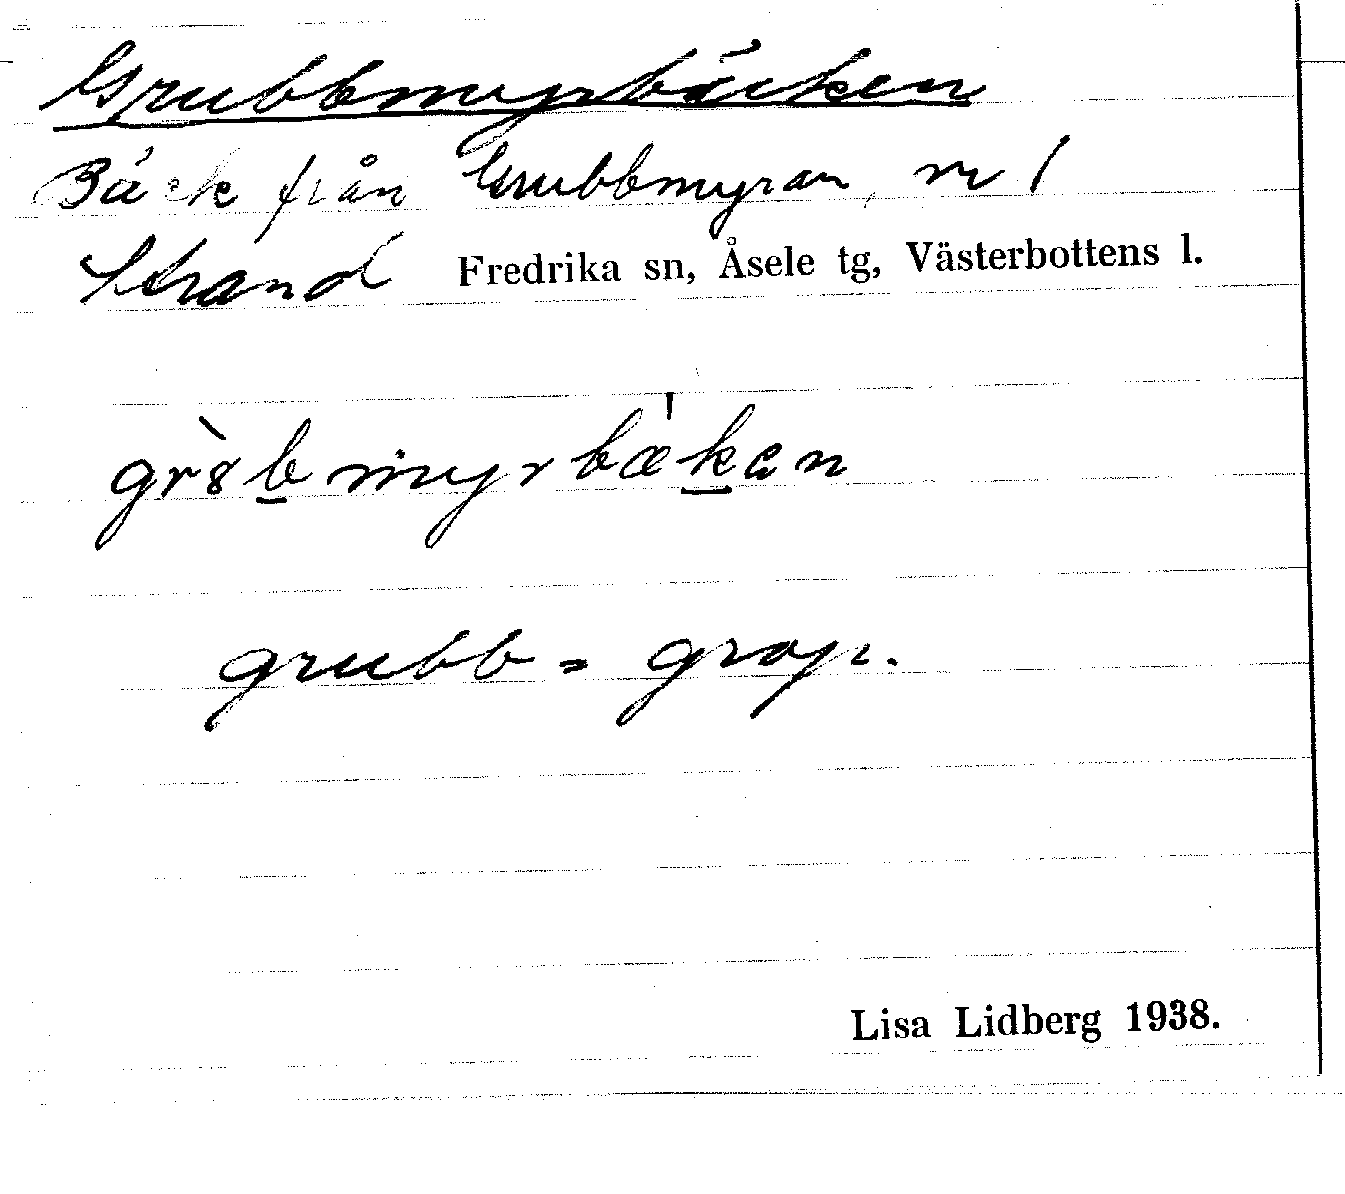 Grubbmyrbäcken
Bäck från Grubbmyran, nr 1
Strand Fredrika sn, Åsele tg, Västerbottens l.
gr8̀b̲myrbæ̍k̲ən
grubb = grop.
Lisa Lidberg 1938.